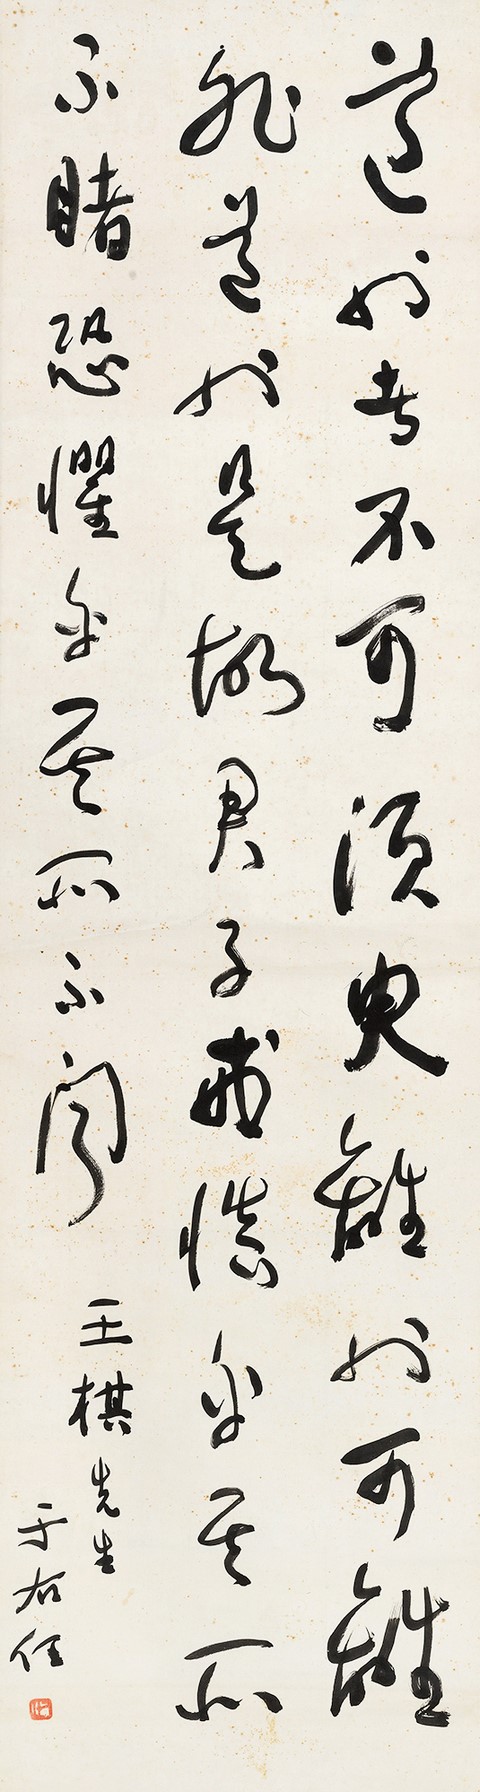 道也者不可須臾離也可離
非道也是故君子戒慎乎其所
不睹恐懼乎其所不聞
王棋先生
于右任